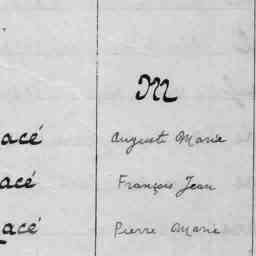 M
acé Auguste Marie
acé François Jean
acé Pierre Marie